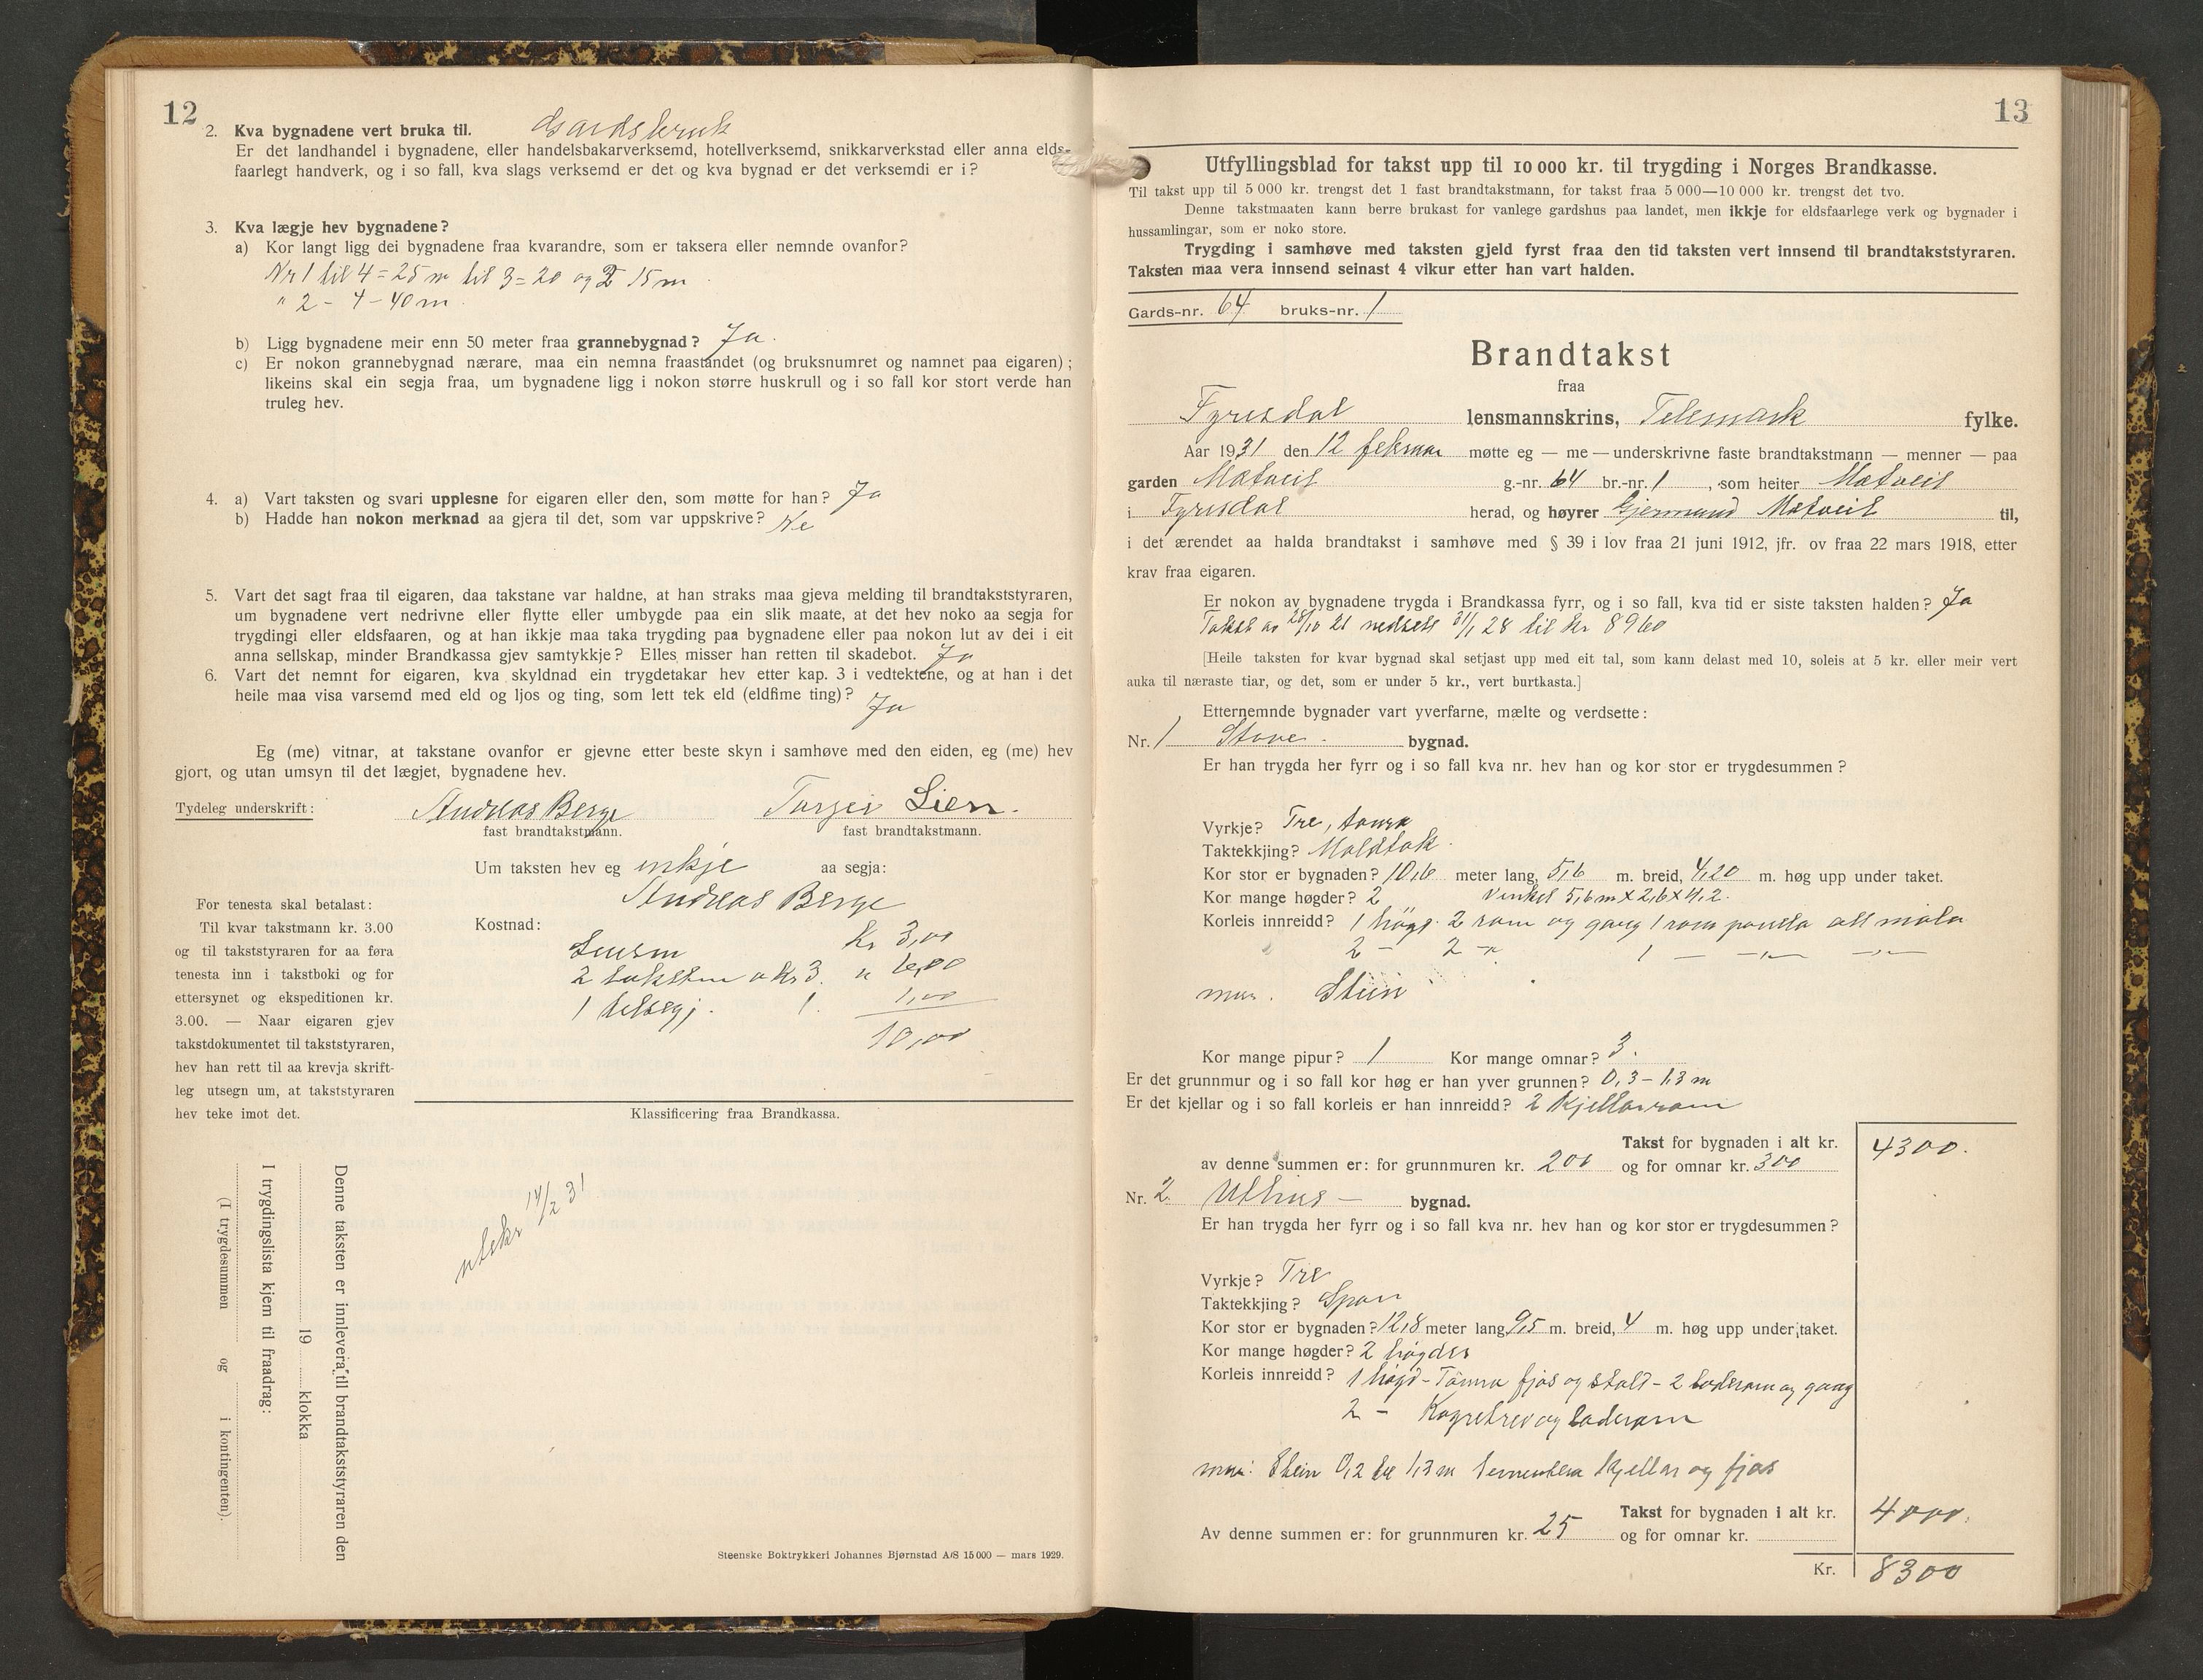 12
2. Kva bygnadene vert bruka til. Gardsbruk
Er det landhandel i bygnadene, eller handelsbakarverksemd, hotellverksemd, snikkarverkstad eller anna elds-
faarlegt handverk, og i so fall, kva slags verksemd er det og kva bygnad er det verksemdi er i?
3. Kva lægje hev bygnadene?
a) Kor langt ligg dei bygnadene fraa kvarandre, som er taksera eller nemnde ovanfor?
Nr 1 til 4 = 25 m til 3 = 20 og 2 15 m
" 2 - 4 - 40 m
b) Ligg bygnadene meir enn 50 meter fraa grannebygnad? Ja.
c) Er nokon grannebygnad nærare, maa ein nemna fraastandet (og bruksnumret og namnet paa eigaren);
likeins skal ein segja fraa, um bygnadene ligg i nokon større huskrull og i so fall kor stort verde han
truleg hev.
4. a) Vart taksten og svari upplesne for eigaren eller den, som møtte for han? Ja
b) Hadde han nokon merknad aa gjera til det, som var uppskrive? Ne
5. Vart det sagt fraa til eigaren, daa takstane var haldne, at han straks maa gjeva melding til brandtakststyraren,
um bygnadene vert nedrivne eller flytte eller umbygde paa ein slik maate, at det hev noko aa segja for
trygdingi eller eldsfaaren, og at han ikkje maa taka trygding paa bygnadene eller paa nokon lut av dei i eit
anna sellskap, minder Brandkassa gjev samtykkje? Elles misser han retten til skadebot. Ja
6. Vart det nemnt for eigaren, kva skyldnad ein trygdetakar hev etter kap. 3 i vedtektene, og at han i det
heile maa visa varsemd med eld og ljos og ting, som lett tek eld (eldfime ting)? Ja
Eg (me) vitnar, at takstane ovanfor er gjevne etter beste skyn i samhøve med den eiden, eg (me) hev
gjort, og utan umsyn til det lægjet, bygnadene hev.
Tydeleg underskrift: Andreas Berge Torgei Lien.
fast brandtakstmann. fast brandtakstmann.
Um taksten hev eg inkje aa segja:
Andreas Berge
For tenesta skal betalast:
Til kvar takstmann kr. 3.00
og til takststyraren for aa føra
tenesta inn i takstboki og for
ettersynet og ekspeditionen kr.
3.00. — Naar eigaren gjev
takstdokumentet til takststyraren,
hev han rett til aa krevja skrift-
leg utsegn um, at takststyraren
hev teke imot det.
Kostnad:
Lensm Kr 3,00
2 takstm a Kr 3. " 6,00
1 1. 1,00
10,00
Klassificering fraa Brandkassa.
Denne taksten er innlevera til brandtakststyraren den
19 klokka
I trygdingslista kjem til fraadrag:
(I trygdesummen og i kontingenten).
utskr 14/2 31
Steenske Boktrykkeri Johannes Bjørnstad A/S 15 000 — mars 1929.
13
Utfyllingsblad for takst upp til 10 000 kr. til trygding i Norges Brandkasse.
Til takst upp til 5 000 kr. trengst det 1 fast brandtakstmann, for takst fraa 5 000—10 000 kr. trengst det tvo.
Denne takstmaaten kann berre brukast for vanlege gardshus paa landet, men ikkje for eldsfaarlege verk og bygnader i
hussamlingar, som er noko store.
Trygding i samhøve med taksten gjeld fyrst fraa den tid taksten vert innsend til brandtakststyraren.
Taksten maa vera innsend seinast 4 vikur etter han vart halden.
Gards-nr. 64 bruks-nr. 1
Brandtakst
fraa
Fyresdal lensmannskrins, Telemark fylke.
Aar 1931 den 12 februar møtte eg — me — underskrivne faste brandtakstmann — menner — paa
garden Matveit g.-nr. 64 br.-nr. 1, som heiter Matveit
i Fyresdal herad, og høyrer Gjermund Matveit til,
i det ærendet aa halda brandtakst i samhøve med § 39 i lov fraa 21 juni 1912, jfr. ov fraa 22 mars 1918, etter
krav fraa eigaren.
Er nokon av bygnadene trygda i Brandkassa fyrr, og i so fall, kva tid er siste taksten halden? Ja
Takst av 28/10 21 nedsett 31/1 28 til kr 8960
[Heile taksten for kvar bygnad skal setjast upp med eit tal, som kann delast med 10, soleis at 5 kr. eller meir vert
auka til næraste tiar, og det, som er under 5 kr., vert burtkasta.]
Etternemnde bygnader vart yverfarne, mælte og verdsette:
Nr. 1 Stove- bygnad.
Er han trygda her fyrr og i so fall kva nr. hev han og kor stor er trygdesummen?
Vyrkje? Tre, tømra
Taktekkjing? Moldtak.
Kor stor er bygnaden? 10,6 meter lang, 5,6 m. breid, 4,20 m. høg upp under taket.
Kor mange høgder? 2 Vinkel 5,6 m x 2,6 x 4,2.
Korleis innreidd? 1 høgd. 2 rom og gang 1 rom panela alt mala
2 - 2 - " 1 - - " - - " -
mur. Stein
Kor mange pipur? 1 Kor mange omnar? 3.
Er det grunnmur og i so fall kor høg er han yver grunnen? 0,3 - 1,3 m
Er det kjellar og i so fall korleis er han innreidd? 2 kjellarrom
Takst for bygnaden i alt kr. 4300.
av denne summen er: for grunnmuren kr. 200 og for omnar kr. 300
Nr. 2. Uthus - bygnad.
Er han trygda her fyrr og i so fall kva nr. hev han og kor stor er trygdesummen?
Vyrkje? Tre
Taktekkjing? Spon
Kor stor er bygnaden? 12,8 meter lang 9,5 m. breid, 4 m. høg upp under taket.
Kor mange høgder? 2 høgder
Korleis innreidd? 1 høgd - Tømra fjos og stall - 2 laderom og gang
2 - og laderom
mur: Stein 0,2 til 1,3 m sementera kjellar og fjos
Takst for bygnaden i alt kr. 4000.
Av denne summen er: for grunnmuren kr. 25 og for omnar kr.
Kr. 8300